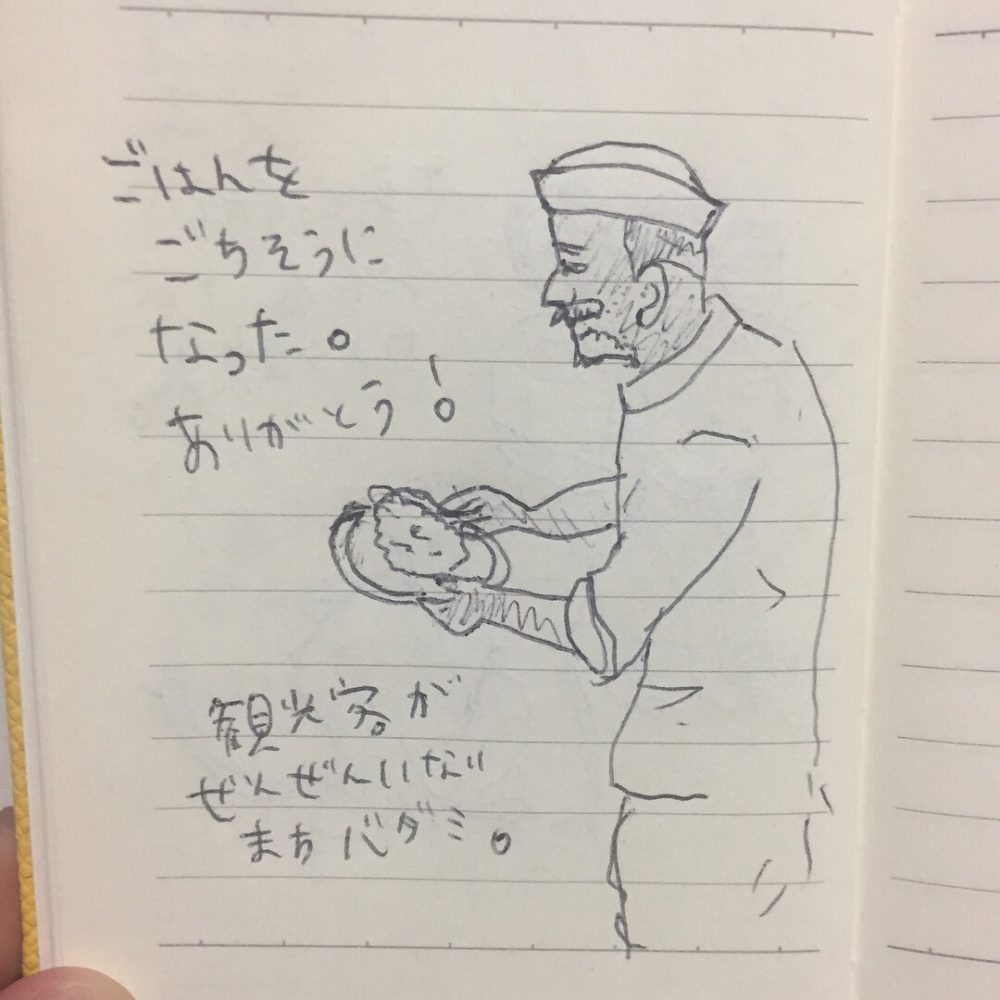 ごはんを
ごちそうに
なった。
ありがとう!
観光客が
ぜんぜんいない
まちバダミ。